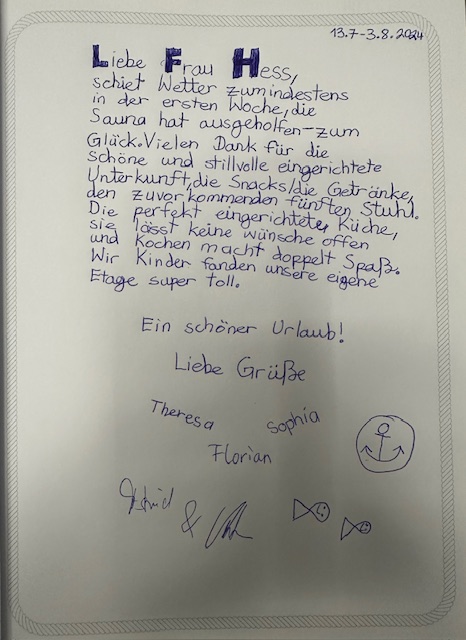 13.7-3.8.2024
Liebe Frau Hess,
schiet Wetter zumindestens
in der ersten Woche, die
Sauna hat ausgeholfen-zum
Glück. Vielen Dank für die
schöne und stillvolle eingerichtete
Unterkunft, die Snacks/die Getränke,
den zuvorkommenden fünften Stuhl.
Die perfekt eingerichtete Küche,
sie lässt keine wünsche offen
und Kochen macht doppelt Spaß.
Wir Kinder fanden unsere eigene
Etage super toll.
Ein schöner Urlaub!
Liebe Grüße
Theresa
Sophia
Florian
Astrid
&